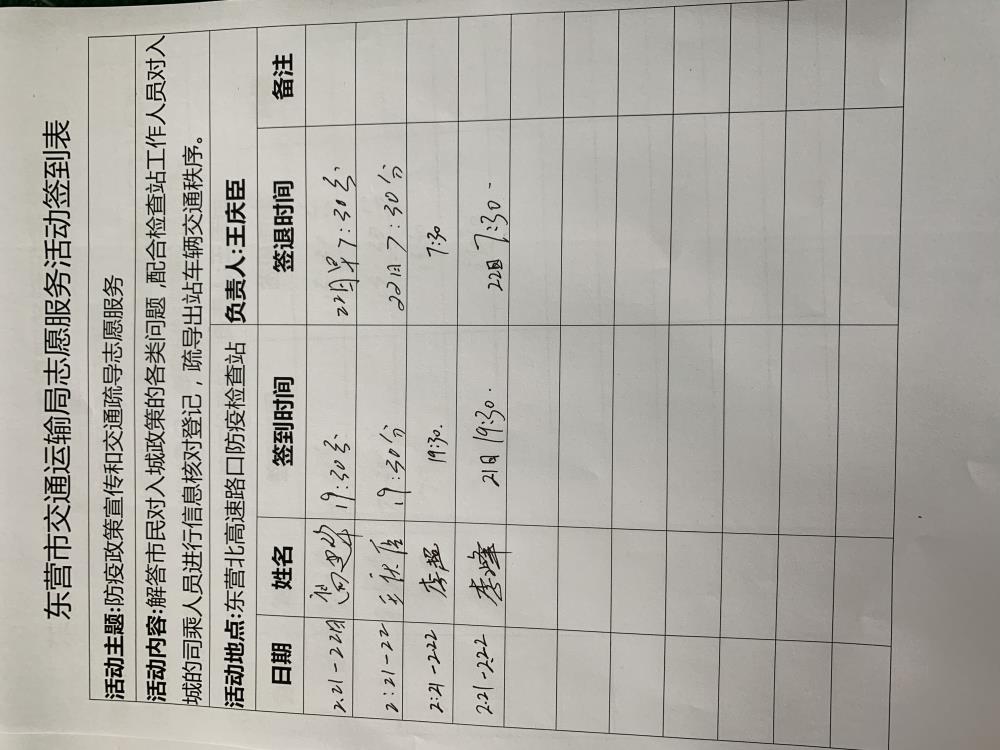 东营市交通运输局志愿服务活动签到表
活动主题:防疫政策宣传和交通疏导志愿服务
活动内容:解答市民对入城政策的各类问题,配合检查站工作人员对入
城的司乘人员进行信息核对登记,疏导出站车辆交通秩序。
活动地点:东营北高速路口防疫检查站 负责人:王庆臣
日期 姓名 签到时间 签退时间 备注
2.21-22日 19:30分 22日早7:30分
2:21-22 19:30分 22日7:30分
2:21-222 李超 19:30. 7:30
2.21-2.22 李峰 21日19:30. 22日7:30.